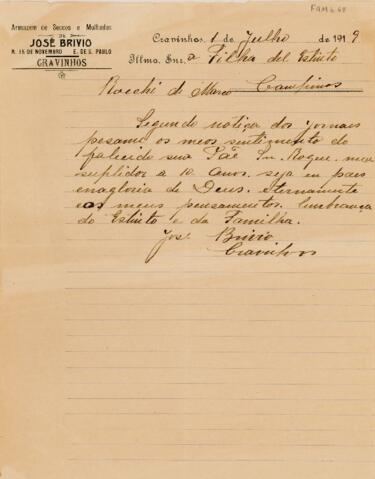 FAM 6.68
Armazem de Seccos e Molhados
DE
JOSÉ BRIVIO
R. 15 DE NOVEMBRO E. DE S. PAULO
CRAVINHOS
Cravinhos, 1 de Julho de 1919
Illmo. Snr. a Filha del Estinto
Rocchi di Marco Campinos
Segundo notiça dos jornais
pesame os meos sentimento do
falecido sua Pãe Snr Roque, meu
suplidor a 10 Anos. seja en paes
enagloria de Deus. eternamente
eos meus pensamentos. lembrança
do Estinto e da Familha.
José Brivio
Cravinhos